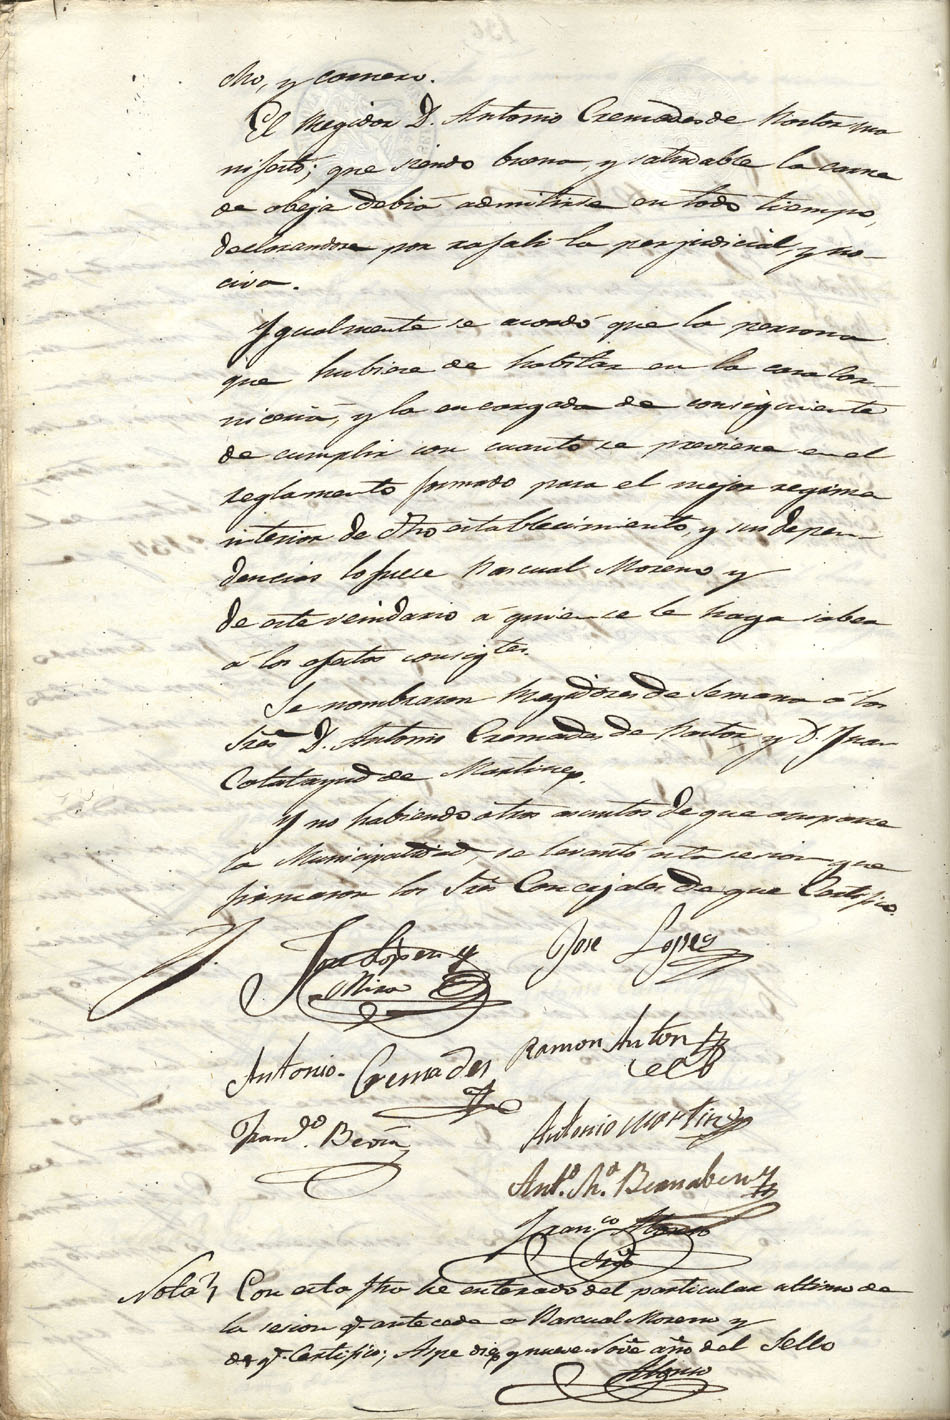 cho, y carnero.
El Regidor D. Antonio Cremades de Pastor ma
nifestó; que siendo buena, y saludable la carne
de obeja debia admitirse en todo tiempo,
declarandose por rafali la perjudicial, y no-
civa.
Ygualmente se acordó que la persona
que hubiere de habitar en la casa Car-
niceria, y la encargada de consiguiente
de cumplir con cuanto se previene en el
reglamento formado para el mejor regimen
interior de dho establecimiento, y sus depen-
dencias lo fuese Pascual Moreno y
de este vecindario á quien se le haga saber
á los efectos consigtes.
Se nombraron Regidores de Semana á los
Sres D. Antonio Cremades de Pastor y D. Juan
Calatayud de Martinez.
Y no habiendo otros asuntos de que ocuparse
la Municipalidad, se levantó esta sesion que
firmaron los Sres Concejales de que Certifico.
Jose Lopez
López y
Mira
Ramon Anton
Antonio Cremades
Antonio Martinez
Franco Beviá
Anto Ma Bernabeu
Franco Alonso
Srio
Nota Con esta fha he enterado del particular ultimo de
la sesion qe antecede a Pascual Moreno y
de qe Certifico; Aspe diez y nueve Nove año del Sello
Alonso